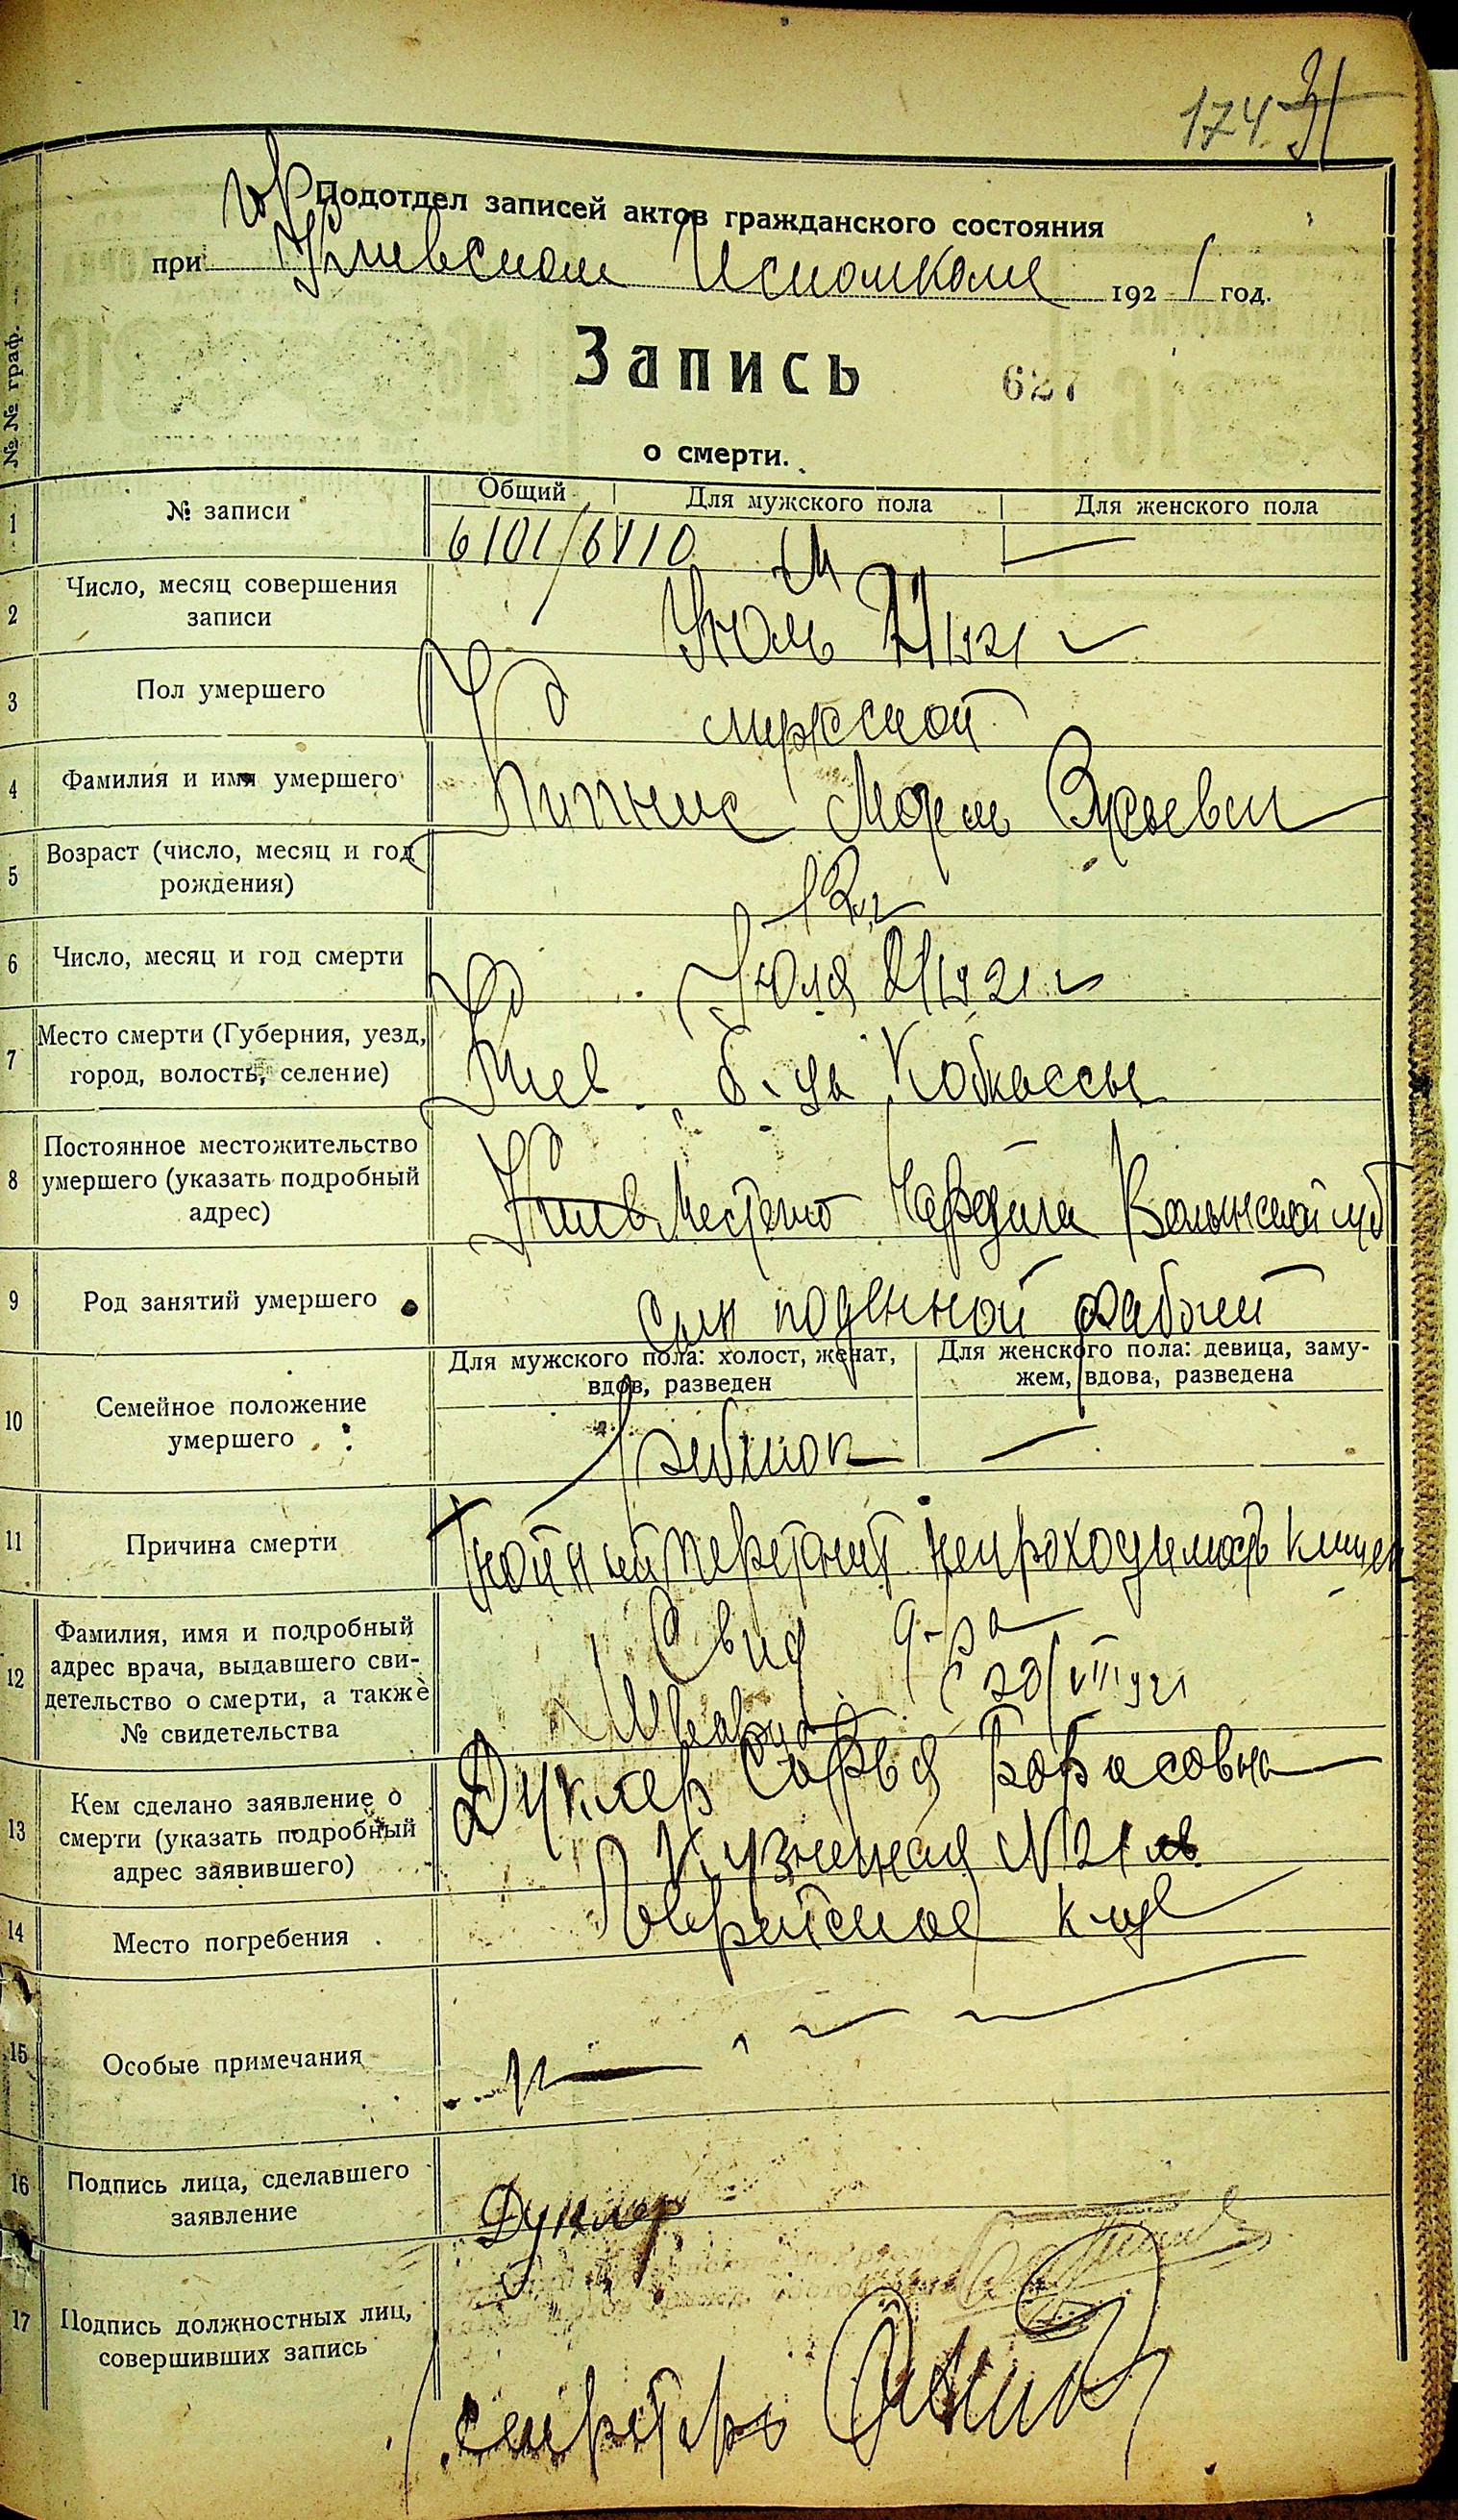 174. 31
гор Подотдел записей актов гражданского состояния
при Киевском Исполкоме 1921 год.
Запись
627
о смерти.
№№ граф.
Общий Для мужского пола Для женского пола
1 № записи 6101/6110 М —
2 Число, месяц совершения
записи
Июль 1921
3 Пол умершего мужской
4 Фамилия и имя умершего Кипнис
5 Возраст (число, месяц и год
рождения)
12
6 Число, месяц и год смерти Июля 21/1921
7 Место смерти (Губерния, уезд,
город, волость, селение)
Киев б-ца
8 Постоянное местожительство
умершего (указать подробный
адрес)
Киев Волынской губ
9 Род занятий умершего Сын поденной
Для мужского пола: холост, женат,
вдов, разведен
Для женского пола: девица, заму-
жем, вдова, разведена
10 Семейное положение
умершего
ребенок —
11 Причина смерти Гнойный перетонит непроходимость кишек
12 Фамилия, имя и подробный
адрес врача, выдавшего сви-
детельство о смерти, а также
№ свидетельства
Свид д-ра
Шварца 20/VII 1921
13 Кем сделано заявление о
смерти (указать подробный
адрес заявившего)
Дуклер Софья Борисовна
Кузнечная № 21 кв
14 Место погребения Еврейское кл
15 Особые примечания
16 Подпись лица, сделавшего
заявление
Дуклер
17 Подпись должностных лиц,
совершивших запись
секретарь